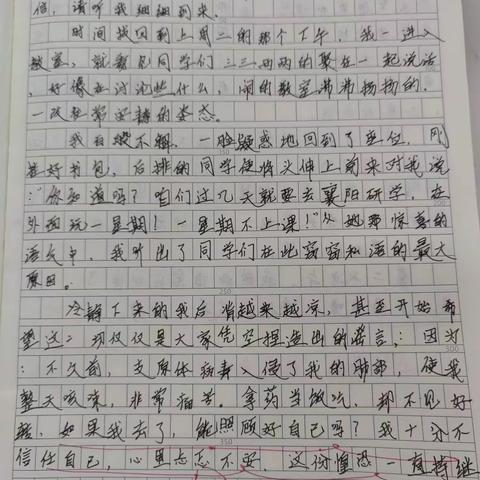 信，请听我细细到来。
时间拨回到上周二的那个下午，我一进入
教室，就看见同学们三三两两的聚在一起说话
，好像在讨论些什么，闹的教室沸沸扬扬的，
一改往常安静的姿态。
我百般不解，一脸疑惑地回到了座位，刚
挂好书包，后排的同学便将头伸上前来对我说
：“你知道吗？咱们过几天就要去襄阳研学，在
外面玩一星期！一星期不上课！”从她那惊喜的
语气中，我听出了同学们在此窃窃私语的最大
原因。
250
冷静下来的我后背越来越凉，甚至开始希
望这一切仅仅是大家凭空捏造出的谣言，因为
300
：不久前，支原体病毒入侵了我的肺部，使我
整天咳嗽，非常痛苦。拿药当饭吃，却不见好
转，如果我去了，能照顾好自己吗？我十分不
350
信任自己，心里忐忑不安，这份惶恐一直持继